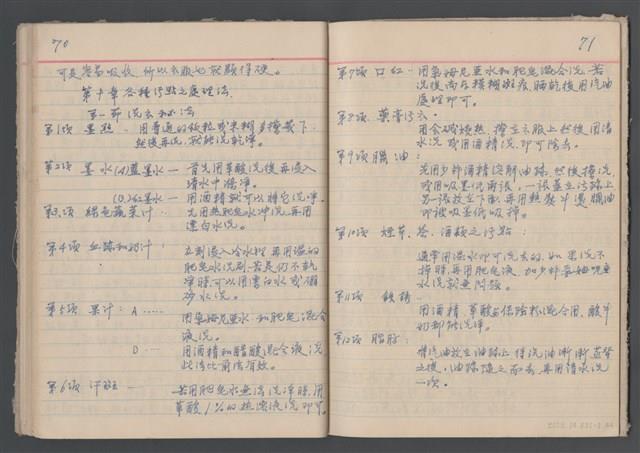 70
可是容易吸收, 所以衣服也就顯得硬。
第十章 各種污點之處理法
第一節 洗衣和法
第1項 墨點 - 用普通的飯粒或米糊 擦幾下
然後再洗, 就能洗乾淨。
第2項 墨水(A)藍墨水 — 首先用草酸洗後再浸入
清水中滌淨。
(B)紅墨水 — 用酒精就可以將它洗淨。
第3項 綠色蔬菜汁 - 先用熱肥皂水冲洗, 再用
漂白水洗。
第4項 血跡和奶汁: 立刻浸入冷水裡 再用溫的
肥皂水洗刷, 若是仍不乾
淨時可以用漂白水或硼
砂水洗。
第5項 果汁: A ......
用氨海尼亞水和肥皂混合
液洗。
B ...
用酒精和醋酸混合液洗
此法比前法有效。
第6項 汗斑 — 若用肥皂水無法洗淨時, 用
草酸1%的熱溶液洗即可。
71
第7項 口紅 - 用氨海尼亞水和肥皂混合洗, 若
洗後尚有模糊斑痕, 晒乾後用汽油
處理即可。
第8項 藥膏污衣 -
用食碱 擦立衣服上然後用清
水洗 或用酒精洗, 即可除去。
第9項 臘油:
先用少許酒精溶解油跡, 然後擦洗,
或用吸墨 兩張, 一張蓋立污跡上
另一張放立下面, 再用熱熨斗燙, 臘油
即被吸墨紙吸掉。
第10項 煙草、茶、酒類之污點:
通常用溫水即可洗去的, 如果洗不
掉時, 再用肥皂液, 加少許安姆呢亞
水洗就無問題。
第11項 鐵銹:
用酒精, 草酸 混合用, 酸牛
奶都能洗淨。
第12項 脂肪:
將汽油放立油跡上 待汽油漸漸蒸發
之後, 油跡隨之而去, 再用清水洗
一次。